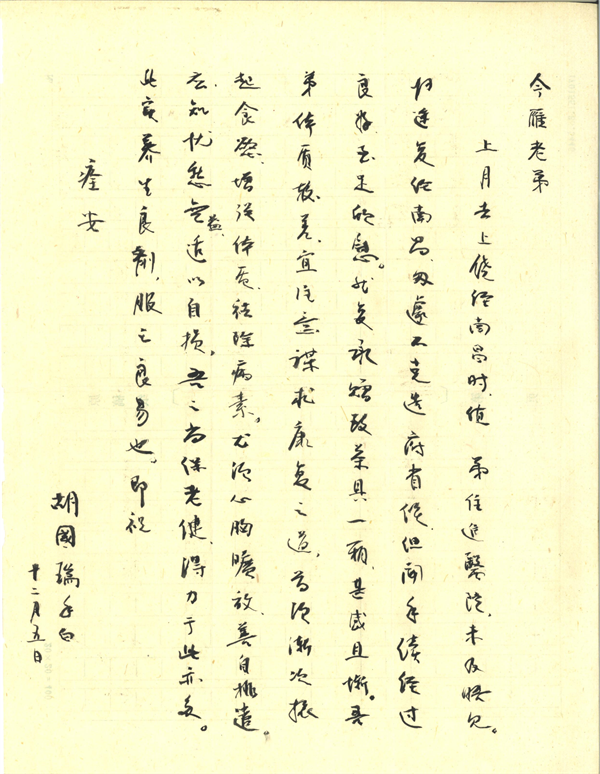 今雁老弟
上月去上饶经南昌时，值 弟住进醫院，未及晤见。
归途复经南昌，匆遽不克造 府省候，但闻手续经过
良好，至足欣慰。我复承 贻致茶具一箱，甚感且惭。吾
弟体质较差，宜注意谋求康复之道，首须渐次振
起食欲，增强体质，祛除病素。尤须心胸曠放，善自排遣。
应知忧愁無益，适以自损。吾之尚保老健，得力于此亦多。
此实养生良劑，服之良易也。即祝
痊安
胡國瑞手白
十二月五日